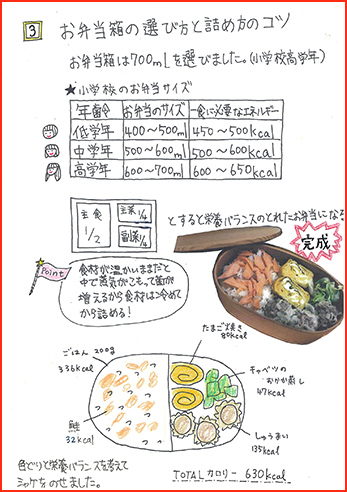 3 お弁当箱の選び方と詰め方のコツ
お弁当箱は700mlを選びました。(小学校高学年)
★小学校のお弁当サイズ
年齢 お弁当のサイズ 一食に必要なエネルギー
低学年 400〜500ml 450〜500kcal
中学年 500〜600ml 500〜600kcal
高学年 600〜700ml 600〜650kcal
主食 1/2 主菜1/6 副菜1/6
とすると栄養バランスのとれたお弁当になる
完成
Point
食材が温かいままだと
中で蒸気がこもって菌が
増えるから食材は冷めて
から詰める!
たまご焼き
80kcal
ごはん 200g
336kcal
キャベツの
おかか蒸し
47kcal
鮭
32kcal
しゅうまい
135kcal
色どりと栄養バランスを考えて
ミックスをのせました。
TOTALカロリー 630kcal